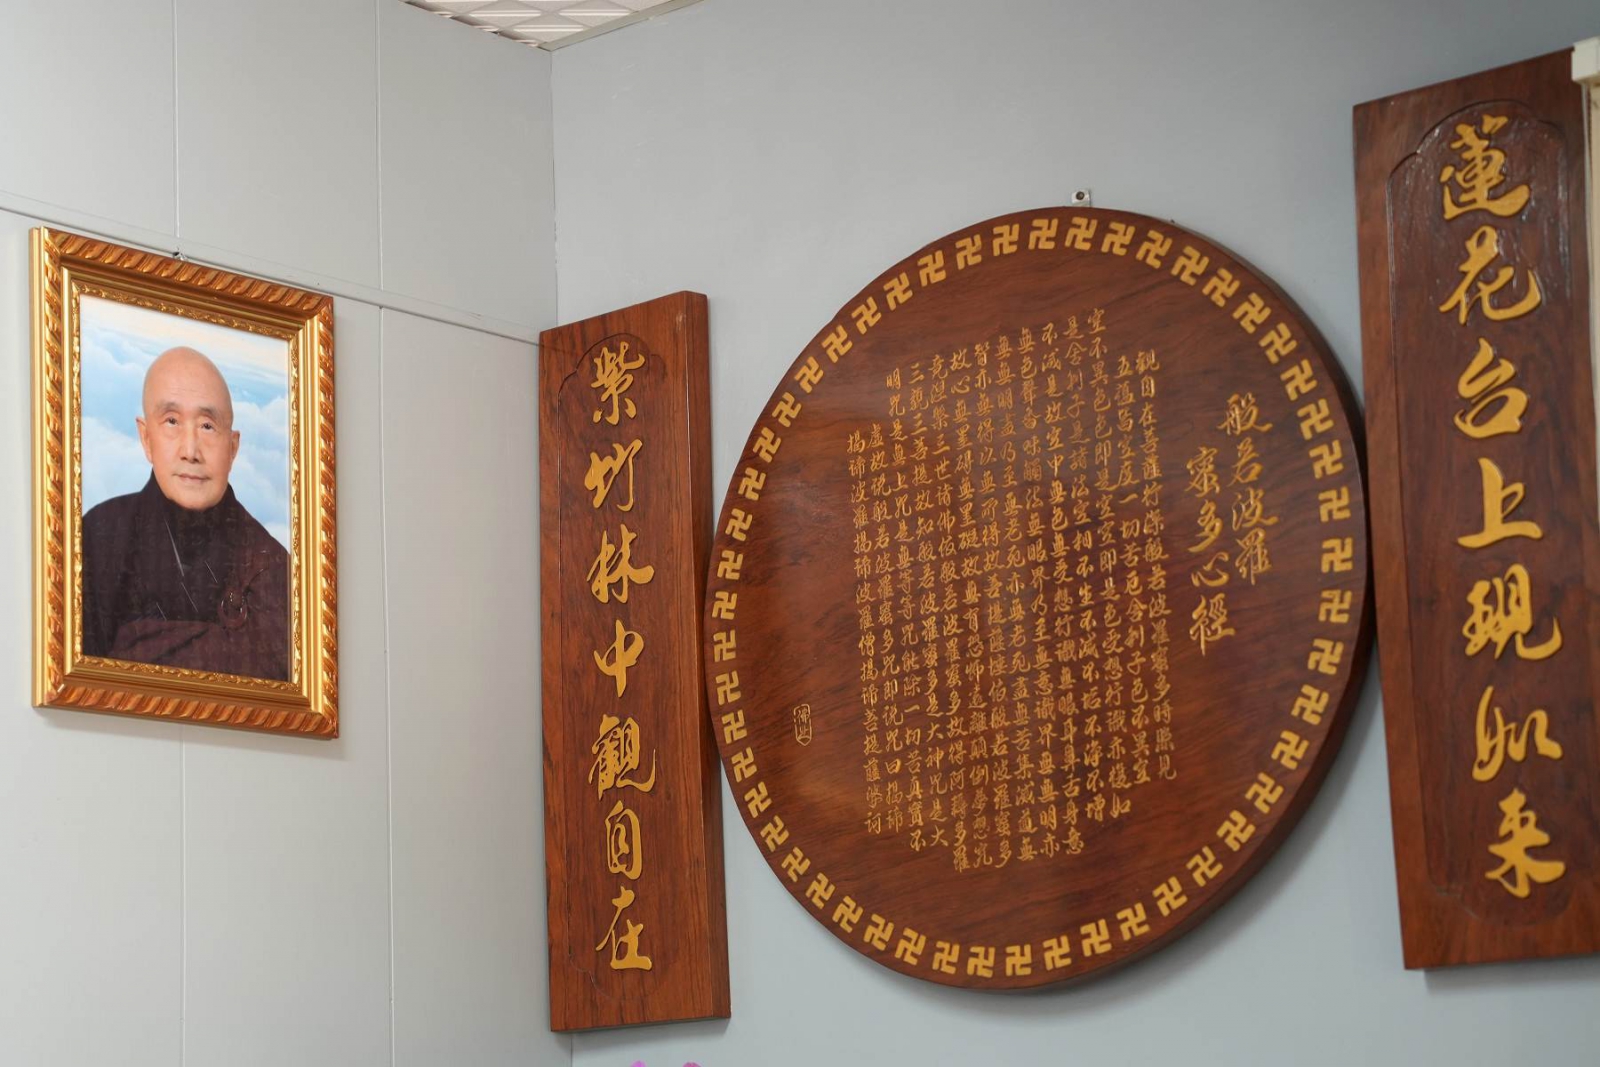 蓮花台上現如來
般若波羅
蜜多心經
觀自在菩薩行深般若波羅蜜多時照見
五蘊皆空度一切苦厄舍利子色不異空
空不異色色即是空空即是色受想行識亦復如
是舍利子是諸法空相不生不滅不垢不淨不增
不減是故空中無色無受想行識無眼耳鼻舌身意
無色聲香味觸法無眼界乃至無意識界無無明亦
無無明盡乃至無老死亦無老死盡無苦集滅道無
智亦無得以無所得故菩提薩埵依般若波羅蜜多
故心無罣礙無罣礙故無有恐怖遠離顛倒夢想究
竟涅槃三世諸佛依般若波羅蜜多故得阿耨多羅
三藐三菩提故知般若波羅蜜多是大神咒是大
明咒是無上咒是無等等咒能除一切苦真實不
虛故說般若波羅蜜多咒即說咒曰揭諦
揭諦波羅揭諦波羅僧揭諦菩提薩婆訶
紫竹林中觀自在